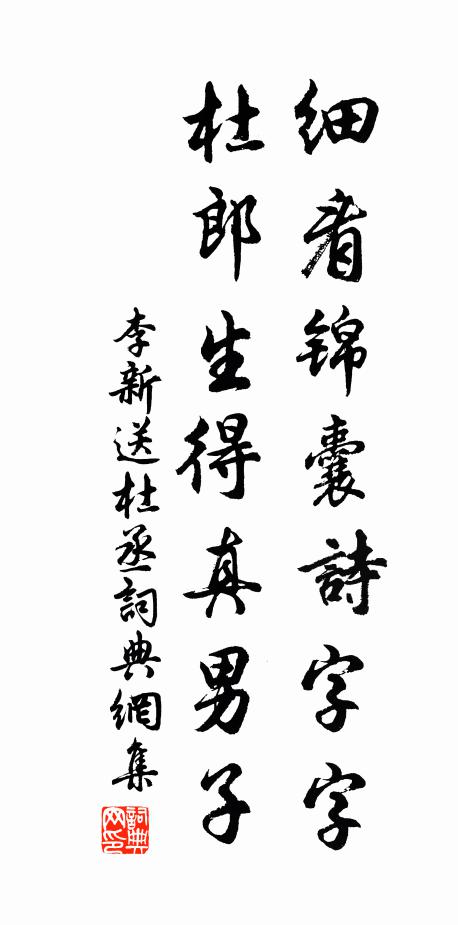 细看锦囊詩字字
杜郎生得真男子
李新送杜丞詞典網集
詞典网印